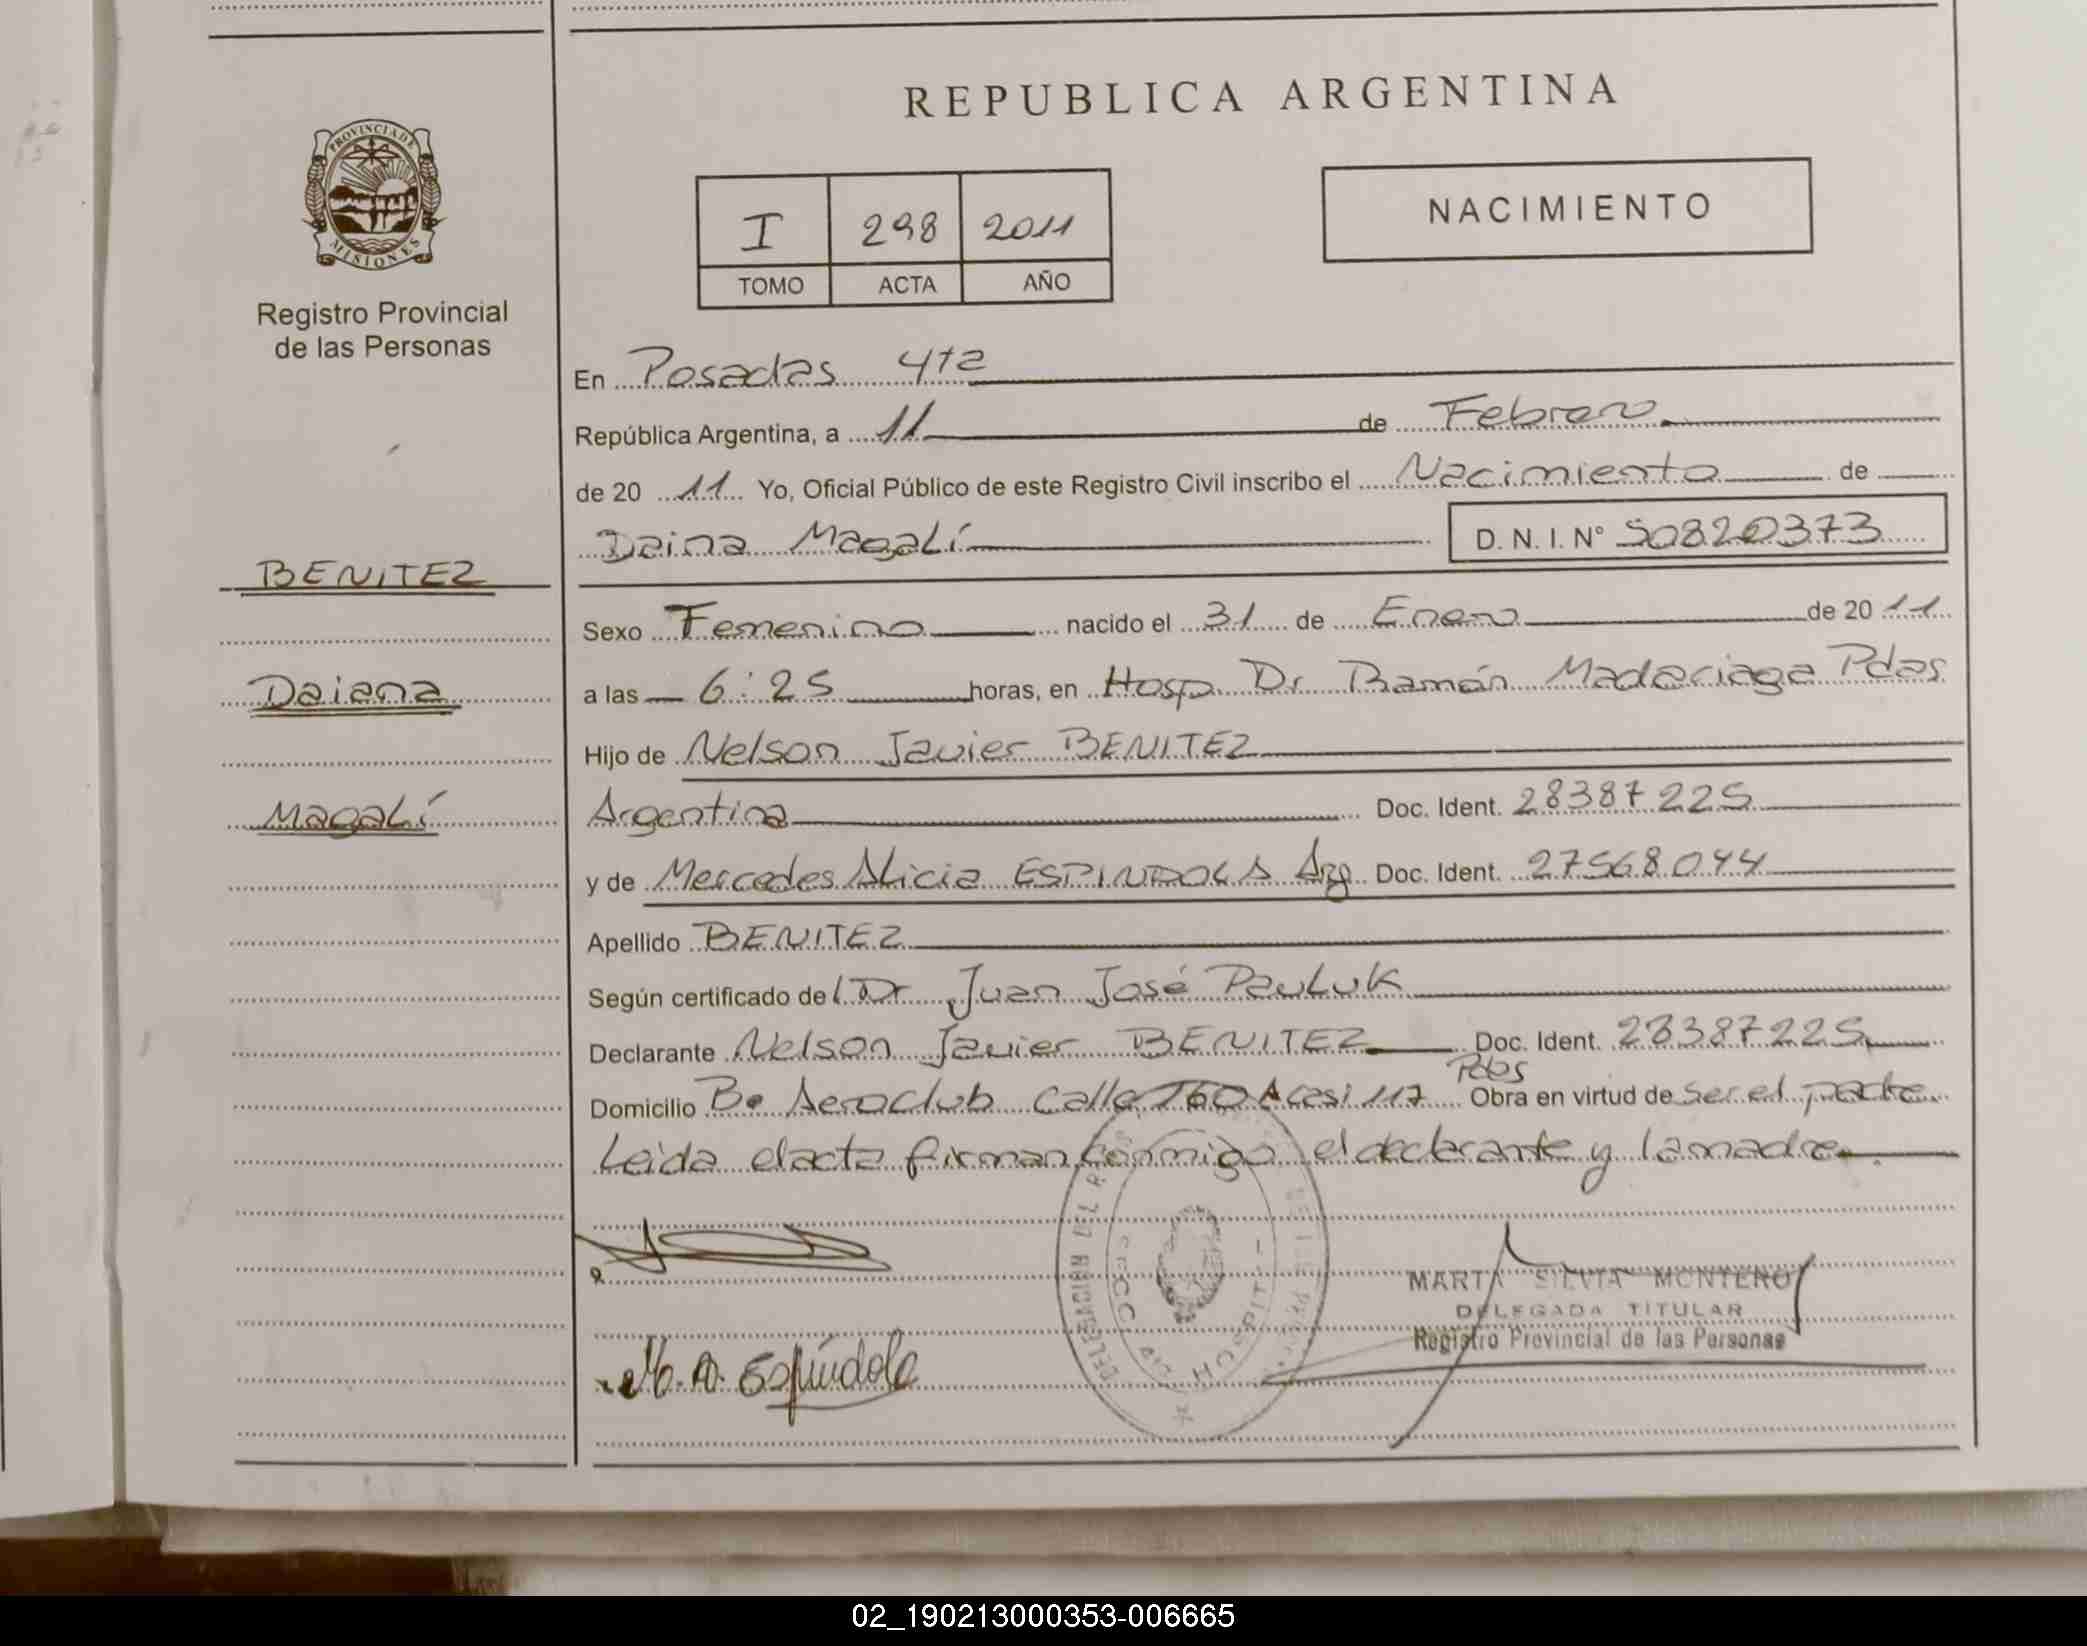 REPUBLICA ARGENTINA
PROVINCIA DE
MISIONES
Registro Provincial
de las Personas
I 298 2011
TOMO ACTA AÑO
NACIMIENTO
En Posadas 4ta
República Argentina, a 11 de Febrero
de 20 11 Yo, Oficial Público de este Registro Civil inscribo el Nacimiento de
Daina Magalí D. N. I. N° 50820373
BENITEZ
Daiana
Magalí
Sexo Femenino nacido el 31 de Enero de 20 11
a las 6:25 horas, en Hosp Dr Ramón Madariaga Pdas
Hijo de Nelson Javier BENITEZ
Argentina Doc. Ident. 28387225
y de Mercedes Alicia ESPINDOLA Arg Doc. Ident. 27568044
Apellido BENITEZ
Según certificado del Dr Juan José Pauluk
Declarante Nelson Javier BENITEZ Doc. Ident. 28387225
Domicilio Bº Aeroclub calle 160 A casi 117 Pdas Obra en virtud de ser el padre
Leida el acta firman conmigo el declarante y la madre
MARTA SILVIA MONTERO
DELEGADA TITULAR
Registro Provincial de las Personas
M. A. Espíndola
DELEGACION DEL
HOSPIT
02_190213000353-006665